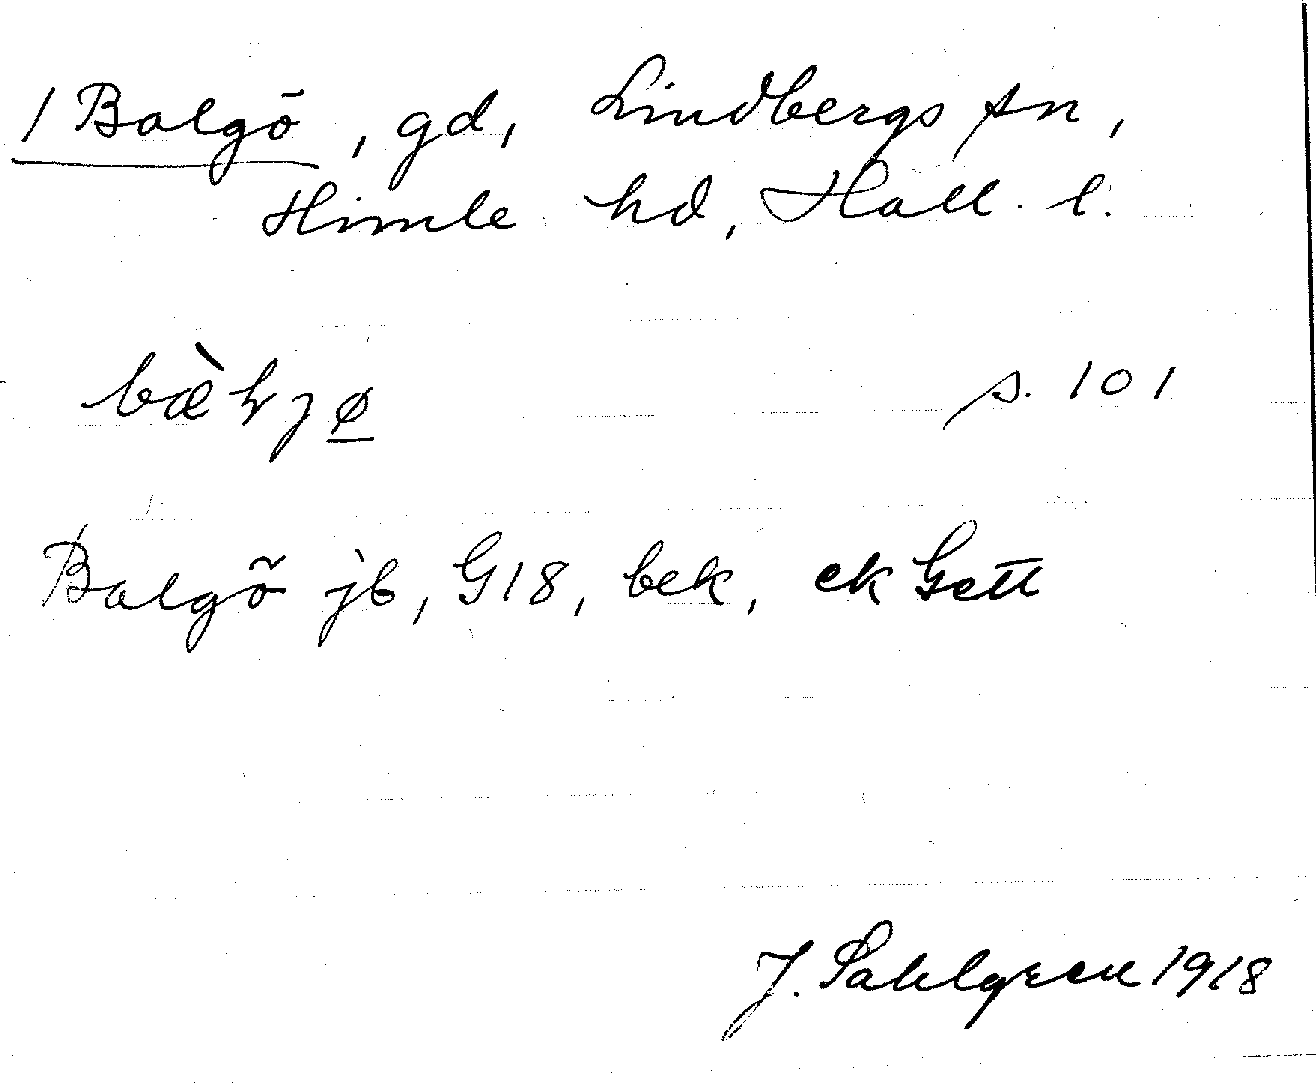 1 Balgö, gd, Lindbergs sn,
Himle hd, Hall. l.
s. 101
Balgö jb, G18, bek, ek Gett
J. Sahlgren 1918